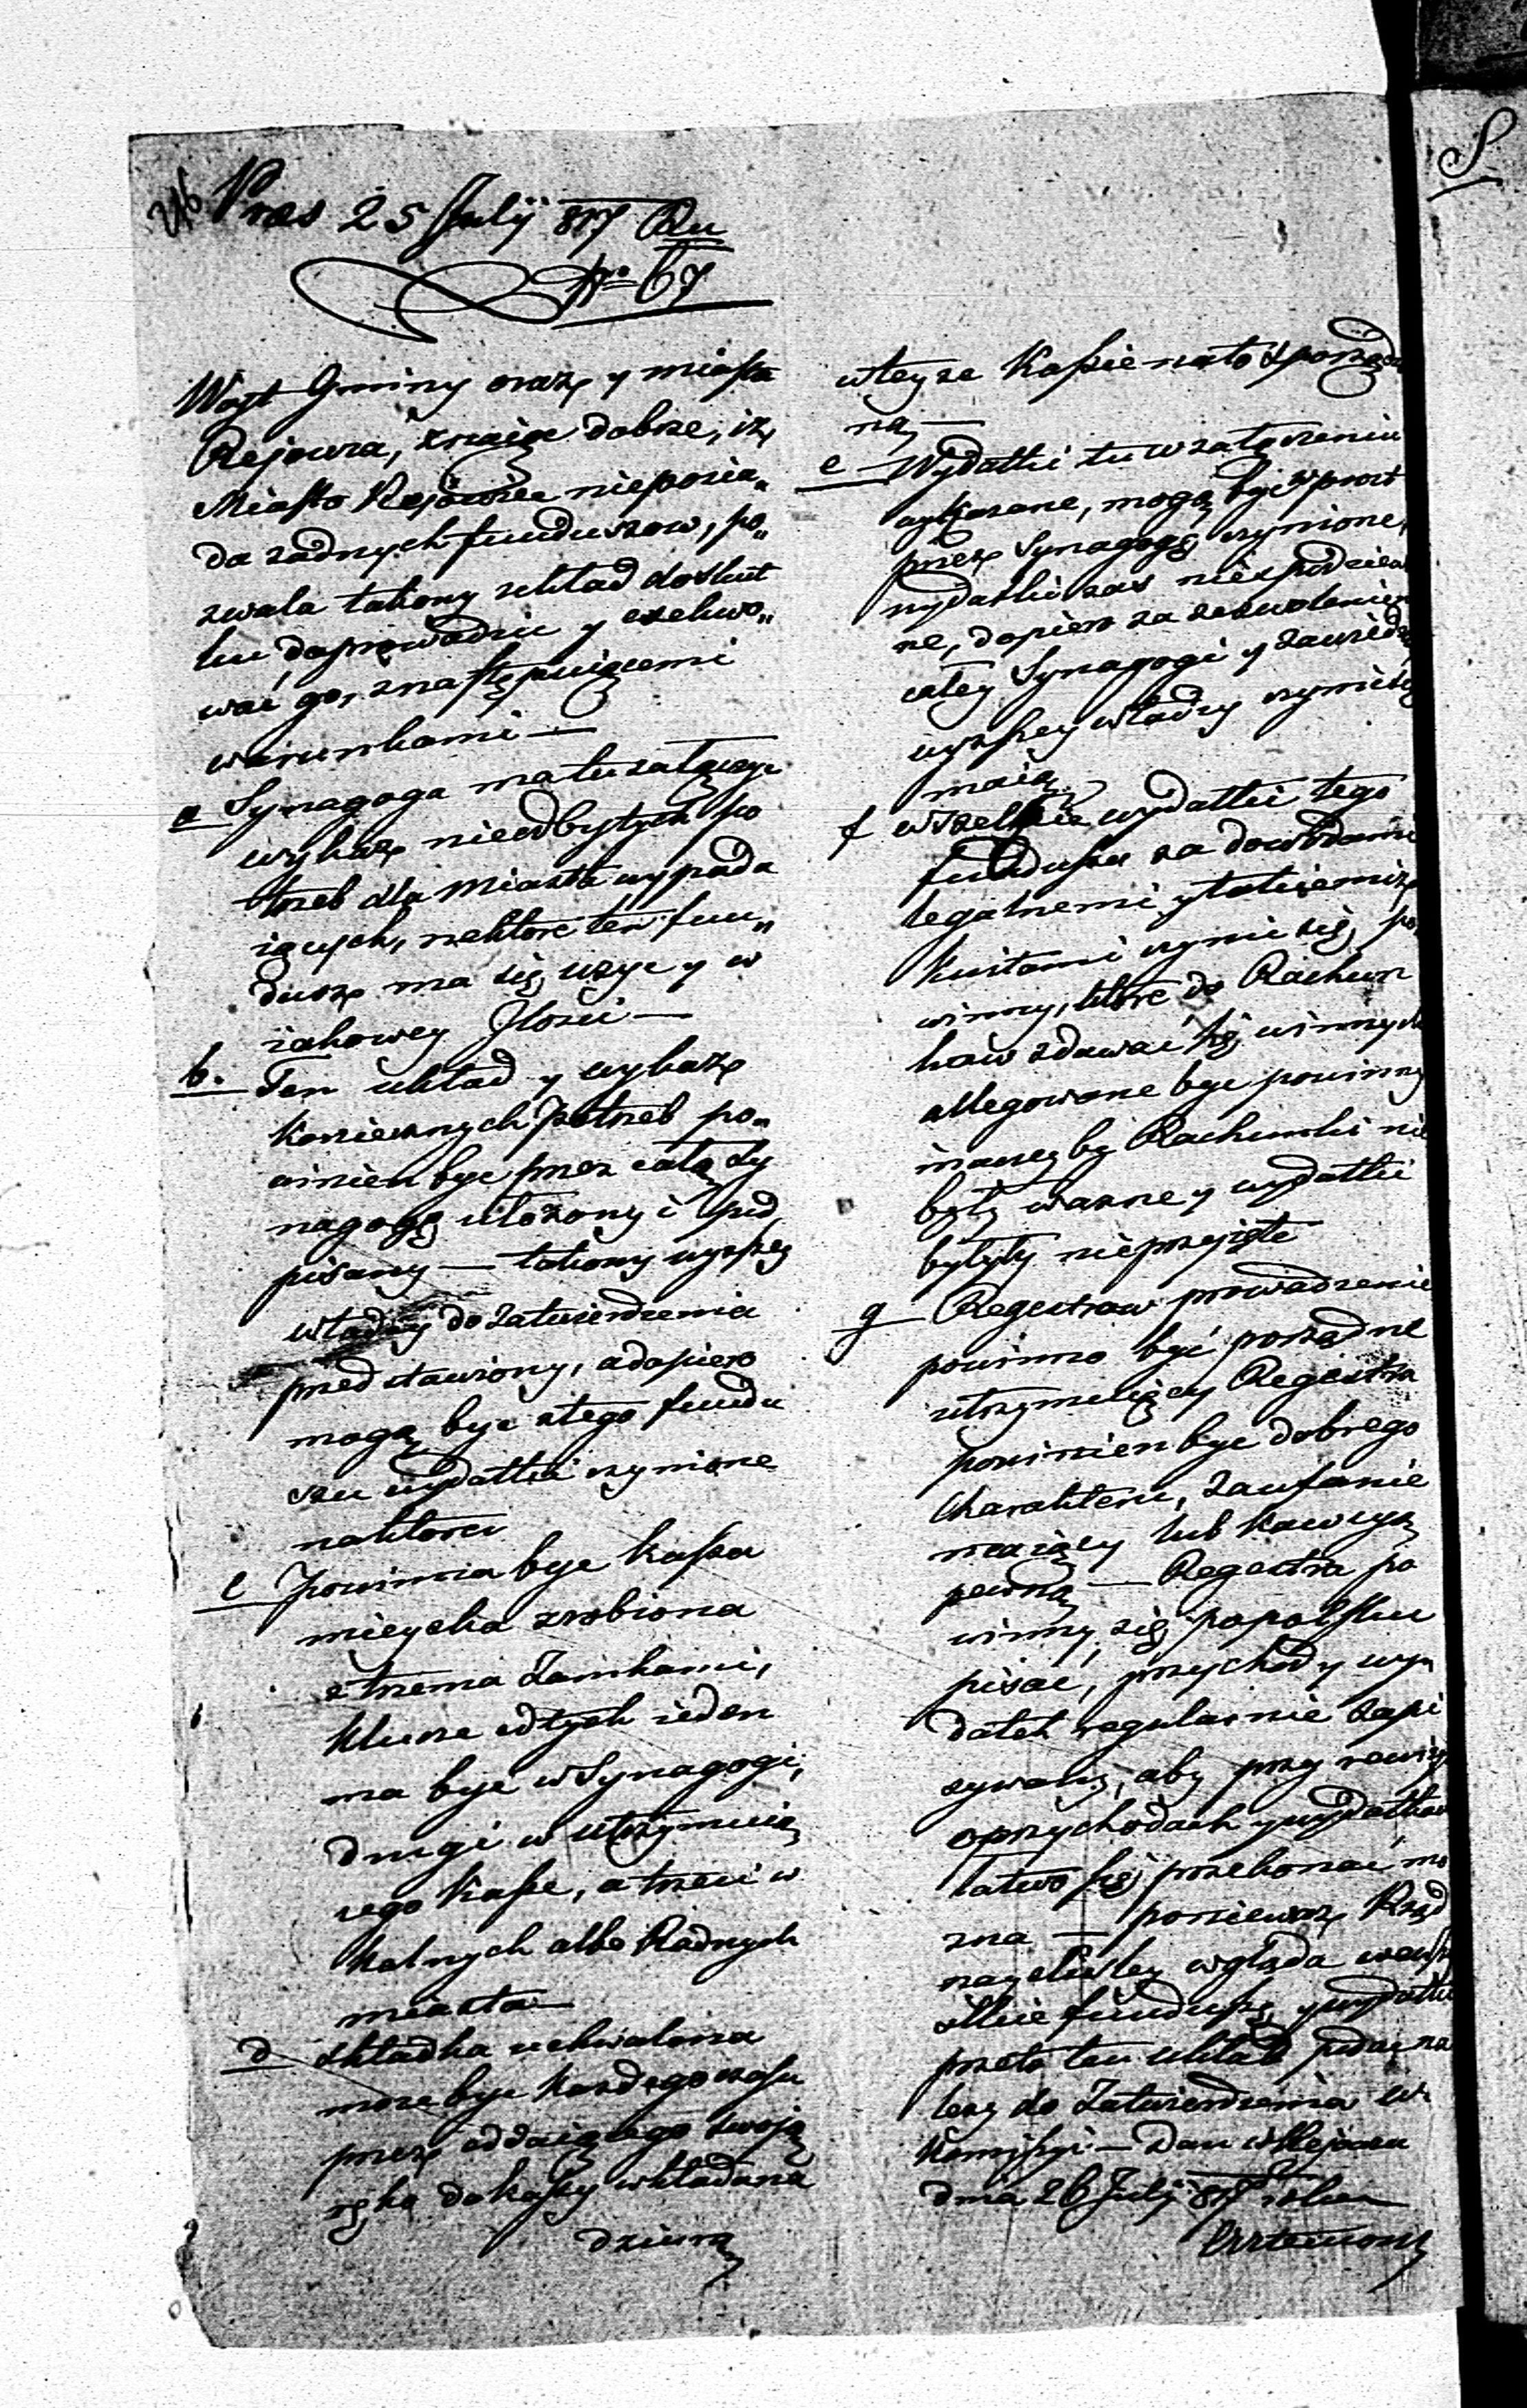 216 Præs 25 Julij 817 Ru
Nro 67
Woyt Gminy oraz y miasta
Rejowca, znaiąc dobrze, iż
Miasto Rejowiec nieposia„
da zadnych funduszow, po„
zwala takowy układ doskut
ku doprowadzic y exekwo„
wać go, z następuiącemi
warunkami —
a Synagoga ma tu załączyc
wykaz nieodbytych po
trzeb dla Miasta wypada
iących, na ktore ten fun„
dusz ma się użyc y w
iakowey Jlosci —
b. Ten układ y wykaz
koniecznych potrzeb po„
winien byc przez całą Sy
nagogę ułożony i pod
pisany — takowy wyzszey
władzy do zatwierdzenia
przedstawiony, a dopiero
mogą byc z tego fundu
szu wydatki czynione
na ktore
c Powinna byc kassa
mieyska zrobiona
z trzema Zamkami,
klucze od tych ieden
ma byc w Synagogi,
drugi w utrzymuią
cego kasse, a trzeci w
kalnych albo Radnych
miasta —
d Składka uchwalona
moze byc kazdego czasu
przez oddaiącego swoją
ręką do kassy wkładana
dziurą
w teyze Kassie na to sporządzo
ną —
e Wydatki tu w załączeniu
wykazane, mogą być wprost
przez Synagogę czynione,
wydatki zas niespodziewa
ne, dopiero za zezwoleniem
całey Synagogi y zawiedze
wyzszey władzy czynić się
maią
f wszelkie wydatki tego
funduszu za dowodami
legalnemi y takiemiz
kwitami czynic się po
winny, ktore do Rachun
kow zdawać się winnych
allegowane byc powinny
inaczey by Rachunki nie
były wazne y wydatki
byłyby nieprzyięte
g Regestrow prowadzenie
powinno być porządne
utrzymuiący Regestra
powinien byc dobrego
charakteru, zaufanie
maiący lub kawcyą
pewną — Regestra po
winny się popolsku
pisać, przychod y wy„
datek regularnie zapi
sywany, aby przy rewizyi
o przychodach y wydatkach
łatwo się przekonać mo
zna — poniewaz Rząd
naywyzszy wgląda we wszy
stkie fundusze y wydatki
przeto ten układ podac na
lezy do Zatwierdzenia W.
Kommissyi — Dan w Rejowcu
dnia 26 Julij 817 roku